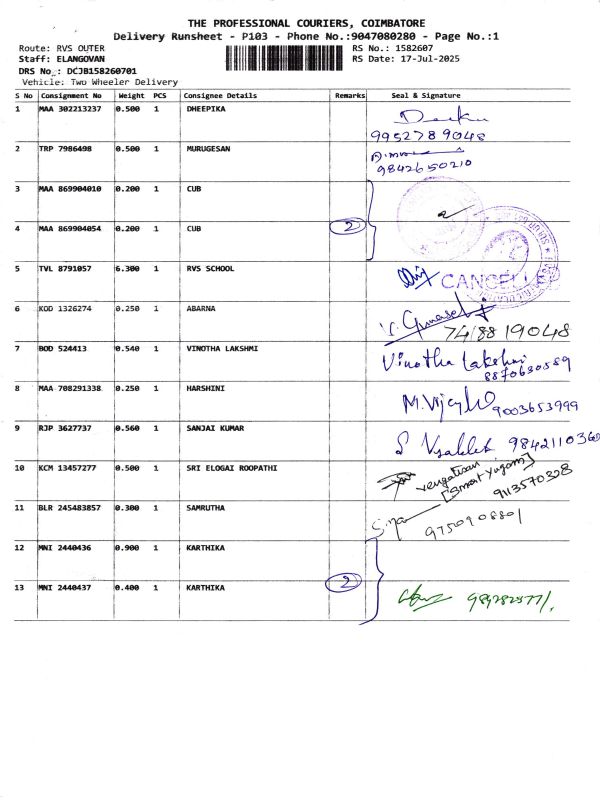 THE PROFESSIONAL COURIERS, COIMBATORE
Delivery Runsheet - P103 - Phone No.:9047080280 - Page No.:1
Route: RVS OUTER
RS No.: 1582607
Staff: ELANGOVAN
RS Date: 17-Jul-2025
DRS No.: DCJB158260701
Vehicle: Two Wheeler Delivery
S No Consignment No Weight PCS Consignee Details Remarks Seal & Signature
1 MAA 302213237 0.500 1 DHEEPIKA
9952789048
2 TRP 7986498 0.500 1 MURUGESAN
9842650210
3 MAA 869904010 0.200 1 CUB
4 MAA 869904054 0.200 1 CUB 2
5 TVL 8791057 6.300 1 RVS SCHOOL
6 KOD 1326274 0.250 1 ABARNA
7418819048
7 BOD 524413 0.540 1 VINOTHA LAKSHMI Vinotha Lakshmi
8870630589
8 MAA 708291338 0.250 1 HARSHINI 9003653999
9 RJP 3627737 0.560 1 SANJAI KUMAR 9842110360
10 KCM 13457277 0.500 1 SRI ELOGAI ROOPATHI
[Smart Yugam]
9113570328
11 BLR 245483857 0.300 1 SAMRUTHA
9750908801
12 MNI 2440436 0.900 1 KARTHIKA
13 MNI 2440437 0.400 1 KARTHIKA 2